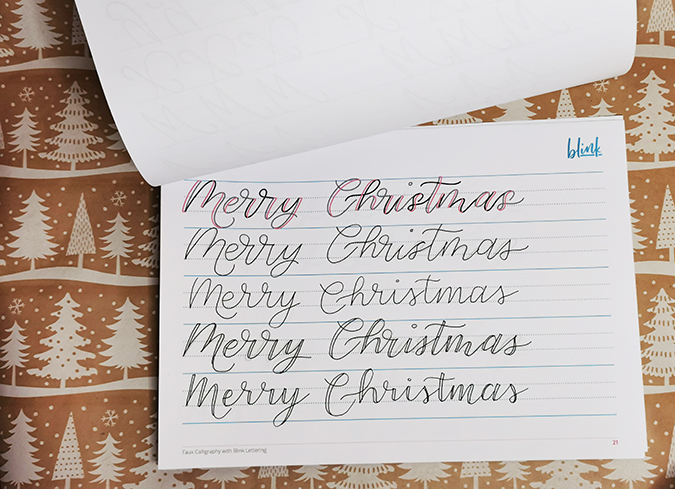 blink
Merry Christmas
Merry Christmas
Merry Christmas
Merry Christmas
Merry Christmas
Faux Calligraphy with Blink Lettering
21